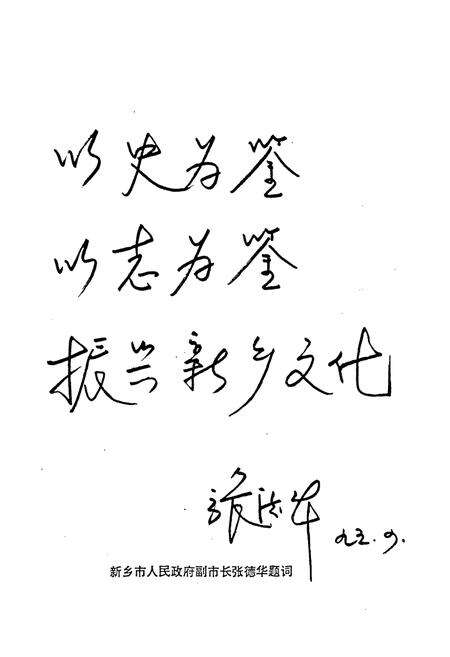 以史为鉴
以志为鉴
振兴新乡文化
张德华
九五.9.
新乡市人民政府副市长张德华题词